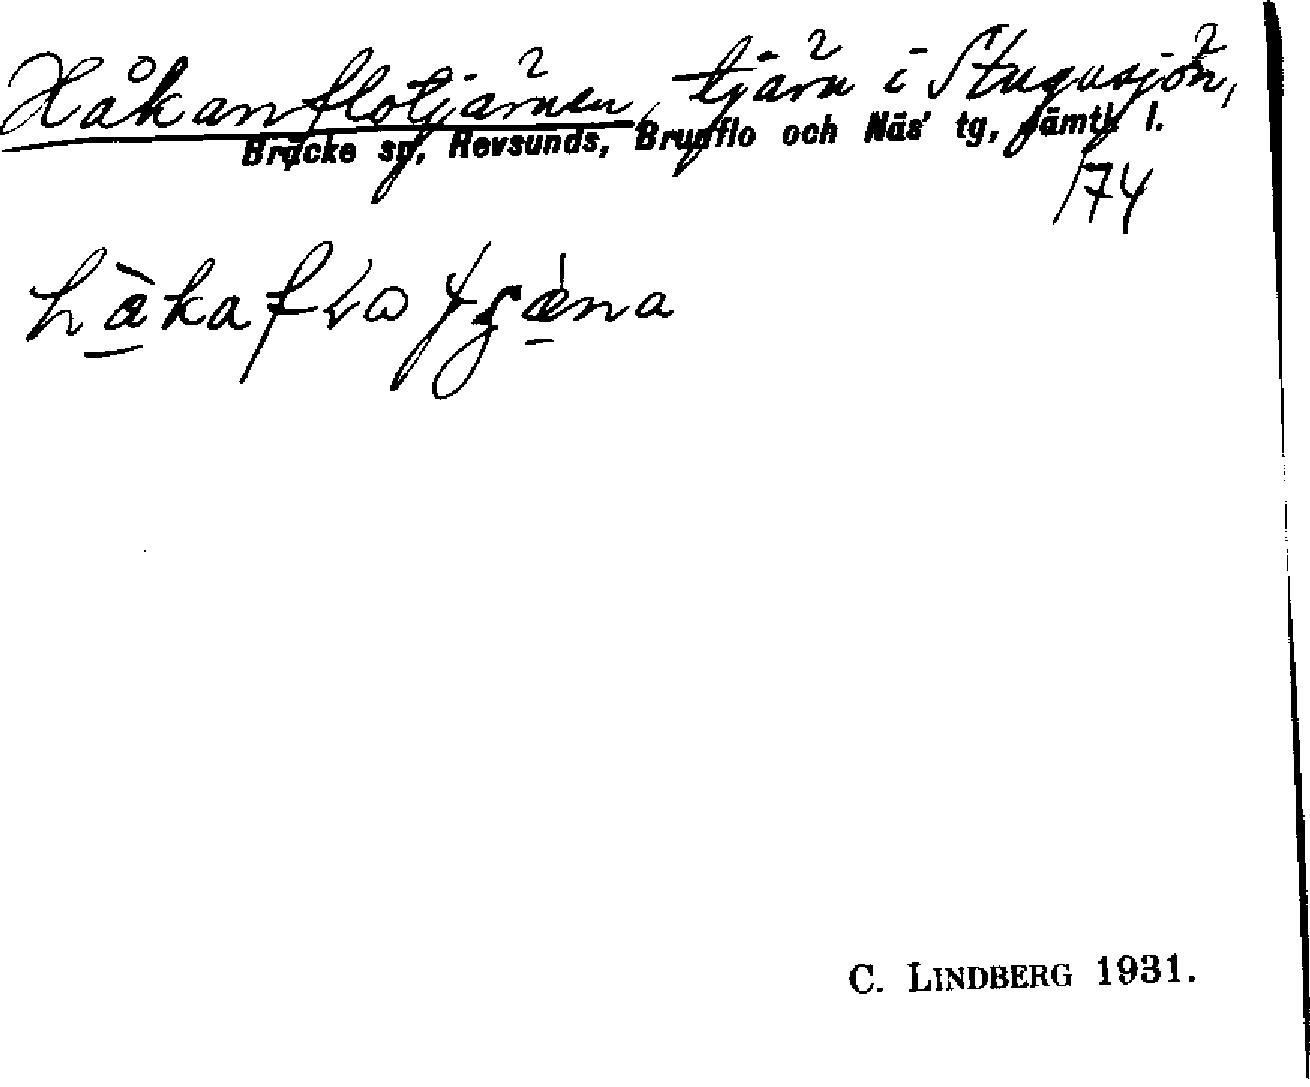 Håkanflotjärnen, tjärn i Stugusjön,
Bräcke sn, Revsunds, Brunflo och Näs' tg, Jämtl. l.
174
C. LINDBERG 1931.